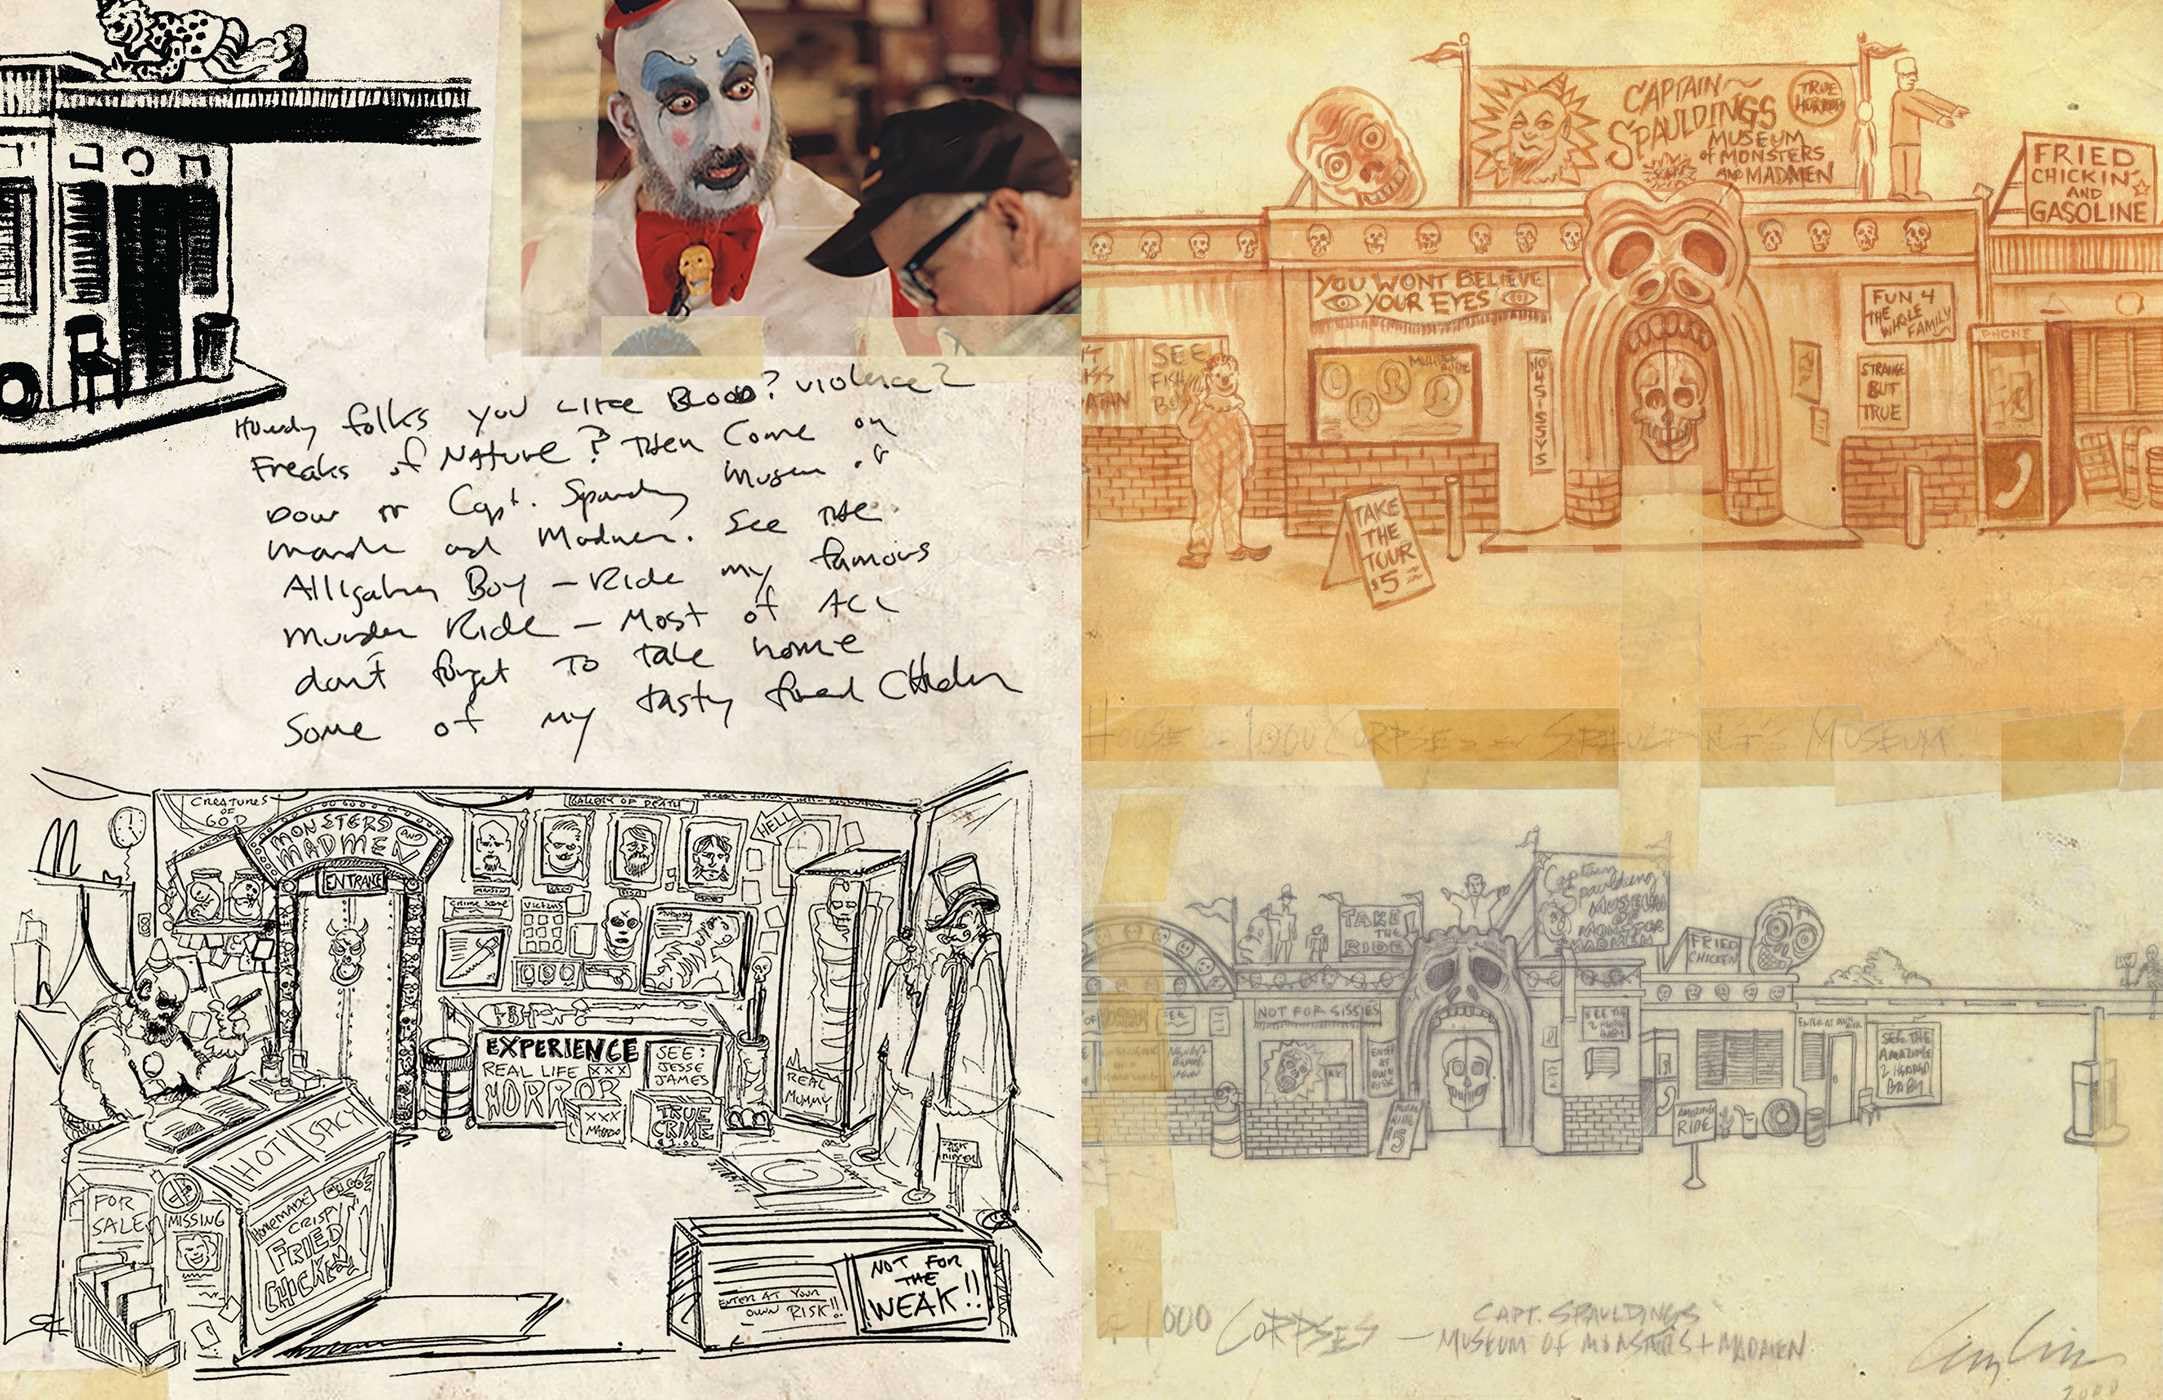 Howdy folks you like Blood? violence?
Freaks of Nature? Then Come on
Down to Capt. Spaulding Museum of
and Madmen. See the
Alligator Boy – Ride my famous
Murder Ride – Most of All
don't forget to take home
Some of my tasty fried Chicken
CREATURES
OF
GOD
MONSTERS
AND
MADMEN
ENTRANCE
GALLERY OF DEATH
HELL
CRIME SCENE
VICTIMS
EXPERIENCE
REAL LIFE XXX
HORROR
SEE:
JESSE
JAMES
XXX
TRUE
CRIME
$1.00
REAL
MUMMY
HOT/SPICY
HOMEMADE
CRISPY
FRIED
CHICKEN
FOR
SALE
MISSING
ENTER AT YOUR
OWN RISK!!
NOT FOR
THE
WEAK!!
CAPTAIN
SPAULDINGS
MUSEUM
of MONSTERS
AND MADMEN
TRUE
HORROR
FRIED
CHICKIN'
AND
GASOLINE
YOU WONT BELIEVE
YOUR EYES
FUN 4
THE
WHOLE
FAMILY
PHONE
SEE
FISH
BOY
STRANGE
BUT
TRUE
TAKE
THE
TOUR
$5
HOUSE of 1,000 CORPSES SPAULDING'S MUSEUM
TAKE
THE
RIDE
Captain
Spaulding's
MUSEUM
OF
MONSTER
MADMEN
FRIED
CHICKEN
NOT FOR SISSIES
SEE THE
2 HEADED
BABY
ENTER AT OWN RISK
SEE THE
AMAZING
2 HEADED
BABY
ENTER
AT
OWN
RISK
RIDE
5
AMAZING
RIDE
of 1,000 CORPSES — CAPT. SPAULDINGS
MUSEUM OF MONSTERS + MADMEN